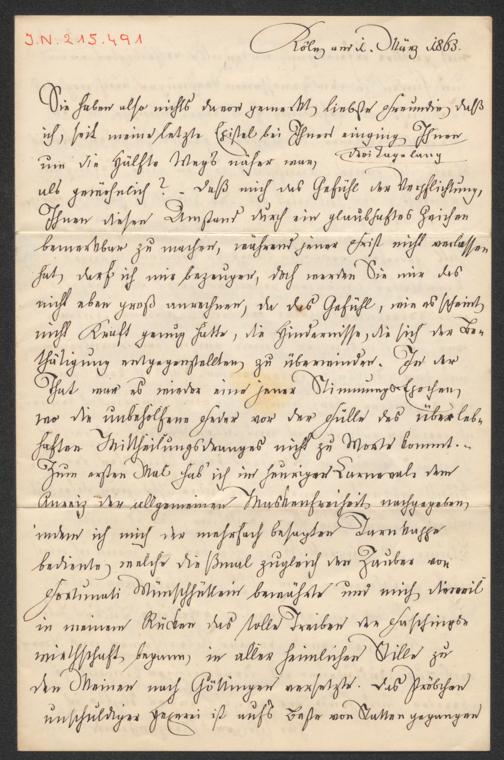 J.N. 215.491
Köln am 1. März 1863.
Sie haben also nichts davon gemerkt, liebste Freundin, daß
ich, seit meine letzte Epistel bei Ihnen einging, Ihnen
drei Tage lang
um die Hälfte Wegs näher war,
als gewöhnlich? – Daß mich das Gefühl der Verpflichtung,
Ihnen diesen Umstand durch ein glaubhaftes Zeichen
bemerkbar zu machen, während jener Frist nicht verlassen
hat, darf ich mir bezeugen, doch werden Sie mir das
nicht eben groß anrechnen, da das Gefühl, wie es scheint,
nicht Kraft genug hatte, die Hindernisse, die sich der Be-
thätigung entgegenstellten, zu überwinden. In der
That war es wieder eine jener Stimmungs-Epochen,
wo die unbeholfene Feder vor der Fülle des überleb-
haften Mittheilungsdranges nicht zu Worte kommt. –
Zum ersten Mal hab' ich im heurigen Carneval dem
Anreiz der allgemeinen Maskenfreiheit nachgegeben,
indem ich mich der mehrfach besagten Tarnkappe
bediente, welche dießmal zugleich den Zauber von
Fortunati Wünschhütlein bewährte und mich, dieweil
in meinem Rücken das tolle Treiben der Faschings-
wirthschaft begann, in aller heimlichen Stille zu
den Meinen nach Göttingen versetzte. Das Pröbchen
unschuldiger Hexerei ist auf's Beste von Statten gegangen